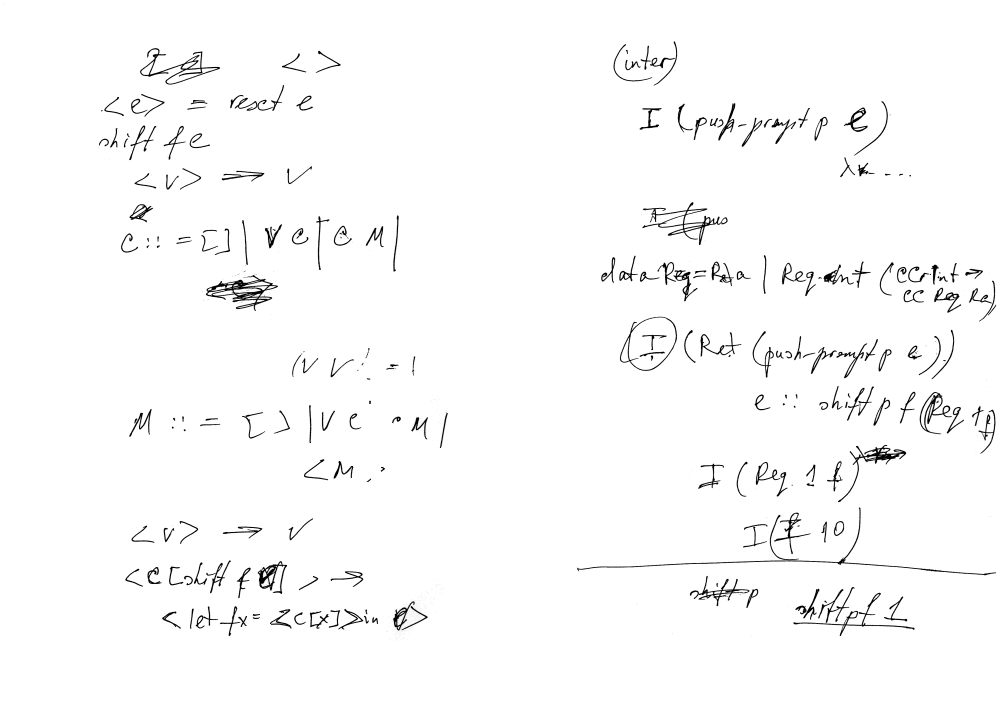 < >
<e> = reset e
shift f e
<v> → v
C ::= [] | V C | C M |
M ::= [] | V C M |
< M
<v> → v
<C[shift f e]> →
<let f x = <C[x]> in e>
(inter)
I (push-prompt p e)
λx- ...
data Req = Ret a | Req Int (CCr Int → CC Req Ra)
I (Ret (push-prompt p e))
e :: shift p f (Req 1 f)
I (Req 1 f)
I (f 10)
shift p
shift p f 1